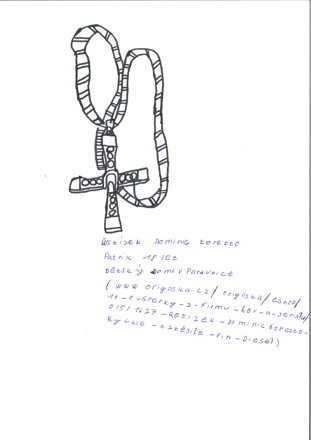 Řetízek Dominic Toretto
Patrik 18 let
Dětský domov Potůčnice
(www origoska.cz/origoska/eshop/
11-1-Sperky-z-filmu-her-a-serialu/
0/5/1427-Retizek-Dominic Toretto-
Rychle-a zběsile-Vin-Diesel)